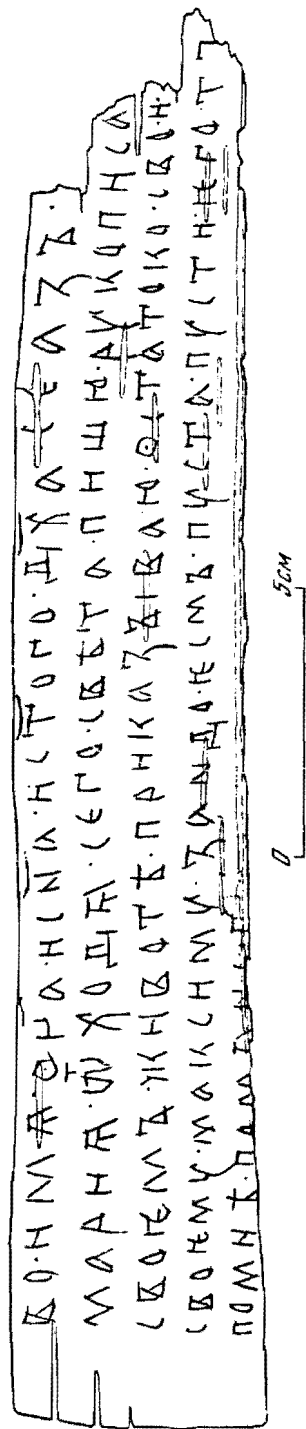 ВО·ИМѦ·Ѻ҃ЦА·И·СNА·И·СТОГО·ДХА·СЕ·АЗЪ·
МАРИѦ·Ѿ ХОДѦ·СЕГО·СВѢТА·ПИШЮ·РУКОПИСА
СВОѤМЪ·ЖИВОТѢ·ПРИКАЗЪІВАЮ·ОСТАТОКО·СВОИ·
СВОѤМУ·МАКСИМУ·ЗАNДО·ѤСМЬ·ПУСТА·ПУСТИ·ѤГОТ
ПОМNѢ·
0 5см